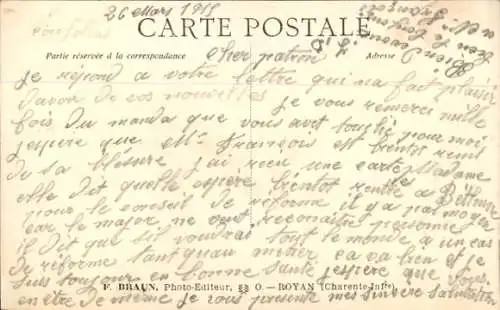 26 Mars 1915
CARTE POSTALE
Partie réservée à la correspondance
Adresse
cher patron
je répond a votre lettre qui ma fait plaisir
davoir de vos nouvelles je vous remerci mille
fois du manda que vous avet touché pour moi,
jespere que Mr François est bientot remi
de sa blessure j'ai recu une carte Madame
elle dit quelle espère bientot rentré a
pour le conseil de réforme il y a pas moyen
car le major ne veut reconaitre personne
il dit que sil voudrai tout le monde a un cas
de réforme tant quau métier ça va bien et je
suis toujour en bonne santé jespère que vous
en ètre de même je vous présente mes sincère salutation
F. BRAUN, Photo-Editeur, O.—ROYAN (Charente-Infre).